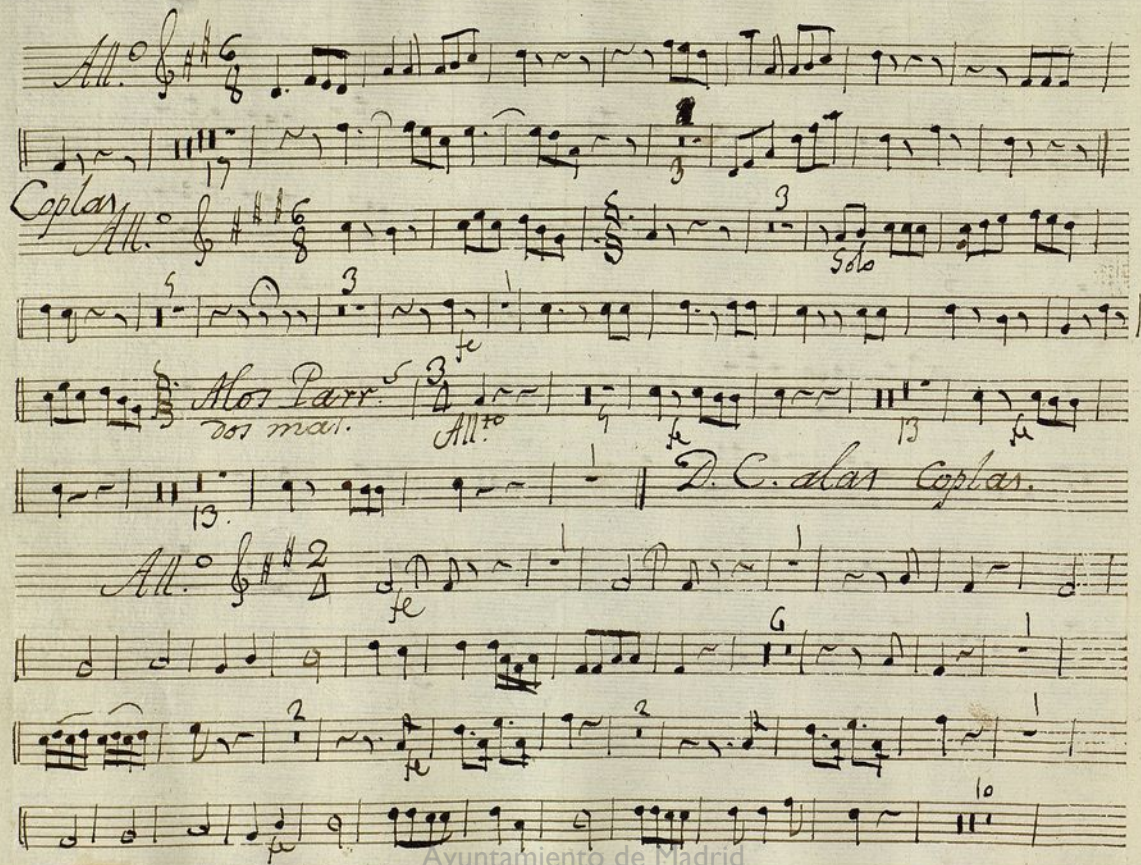 All.º 6 8
17 3
Coplas
All.º 6 8 3
Solo
5 3 1
fe
Alos Parr.s 3
dos mas. All.to 4 fe 13 fe
13. 1 D. C. alas Coplas.
All.º 2 1 1
fe
6 1
2 2 1
fe
10
fe
Ayuntamiento de Madrid